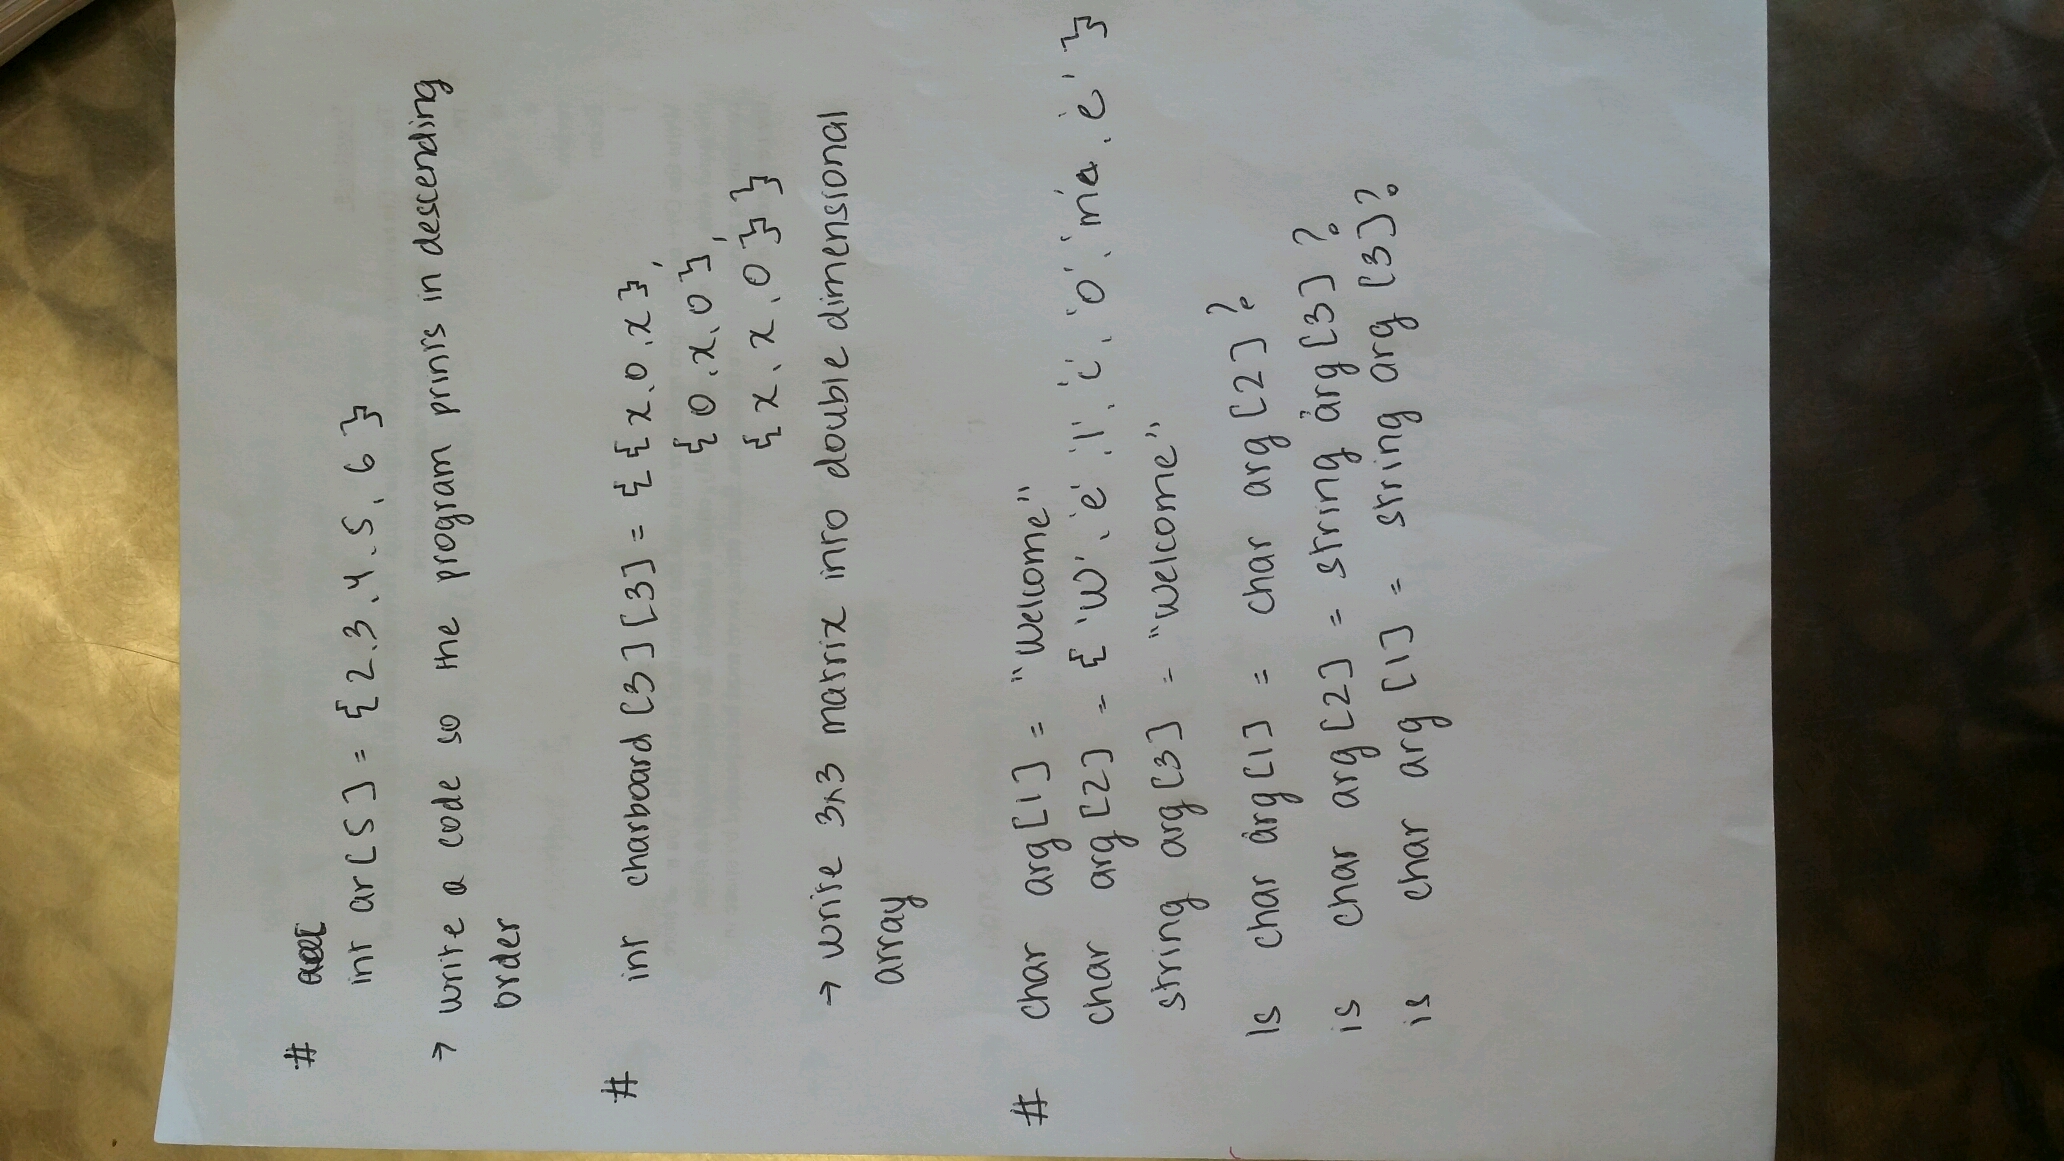 #
int ar[5] = {2,3,4,5,6}
→ write a code so the program prints in descending
order
# int charboard [3][3] = {{x,0,x},
{0,x,0},
{x,x,0}}
→ write 3x3 matrix into double dimensional
array
# char arg[1] = "Welcome"
char arg[2] = {'W','e','l','c','o','m','e'}
string arg[3] = "Welcome"
Is char arg[1] = char arg[2]?
is char arg[2] = string arg[3]?
is char arg[1] = string arg[3]?